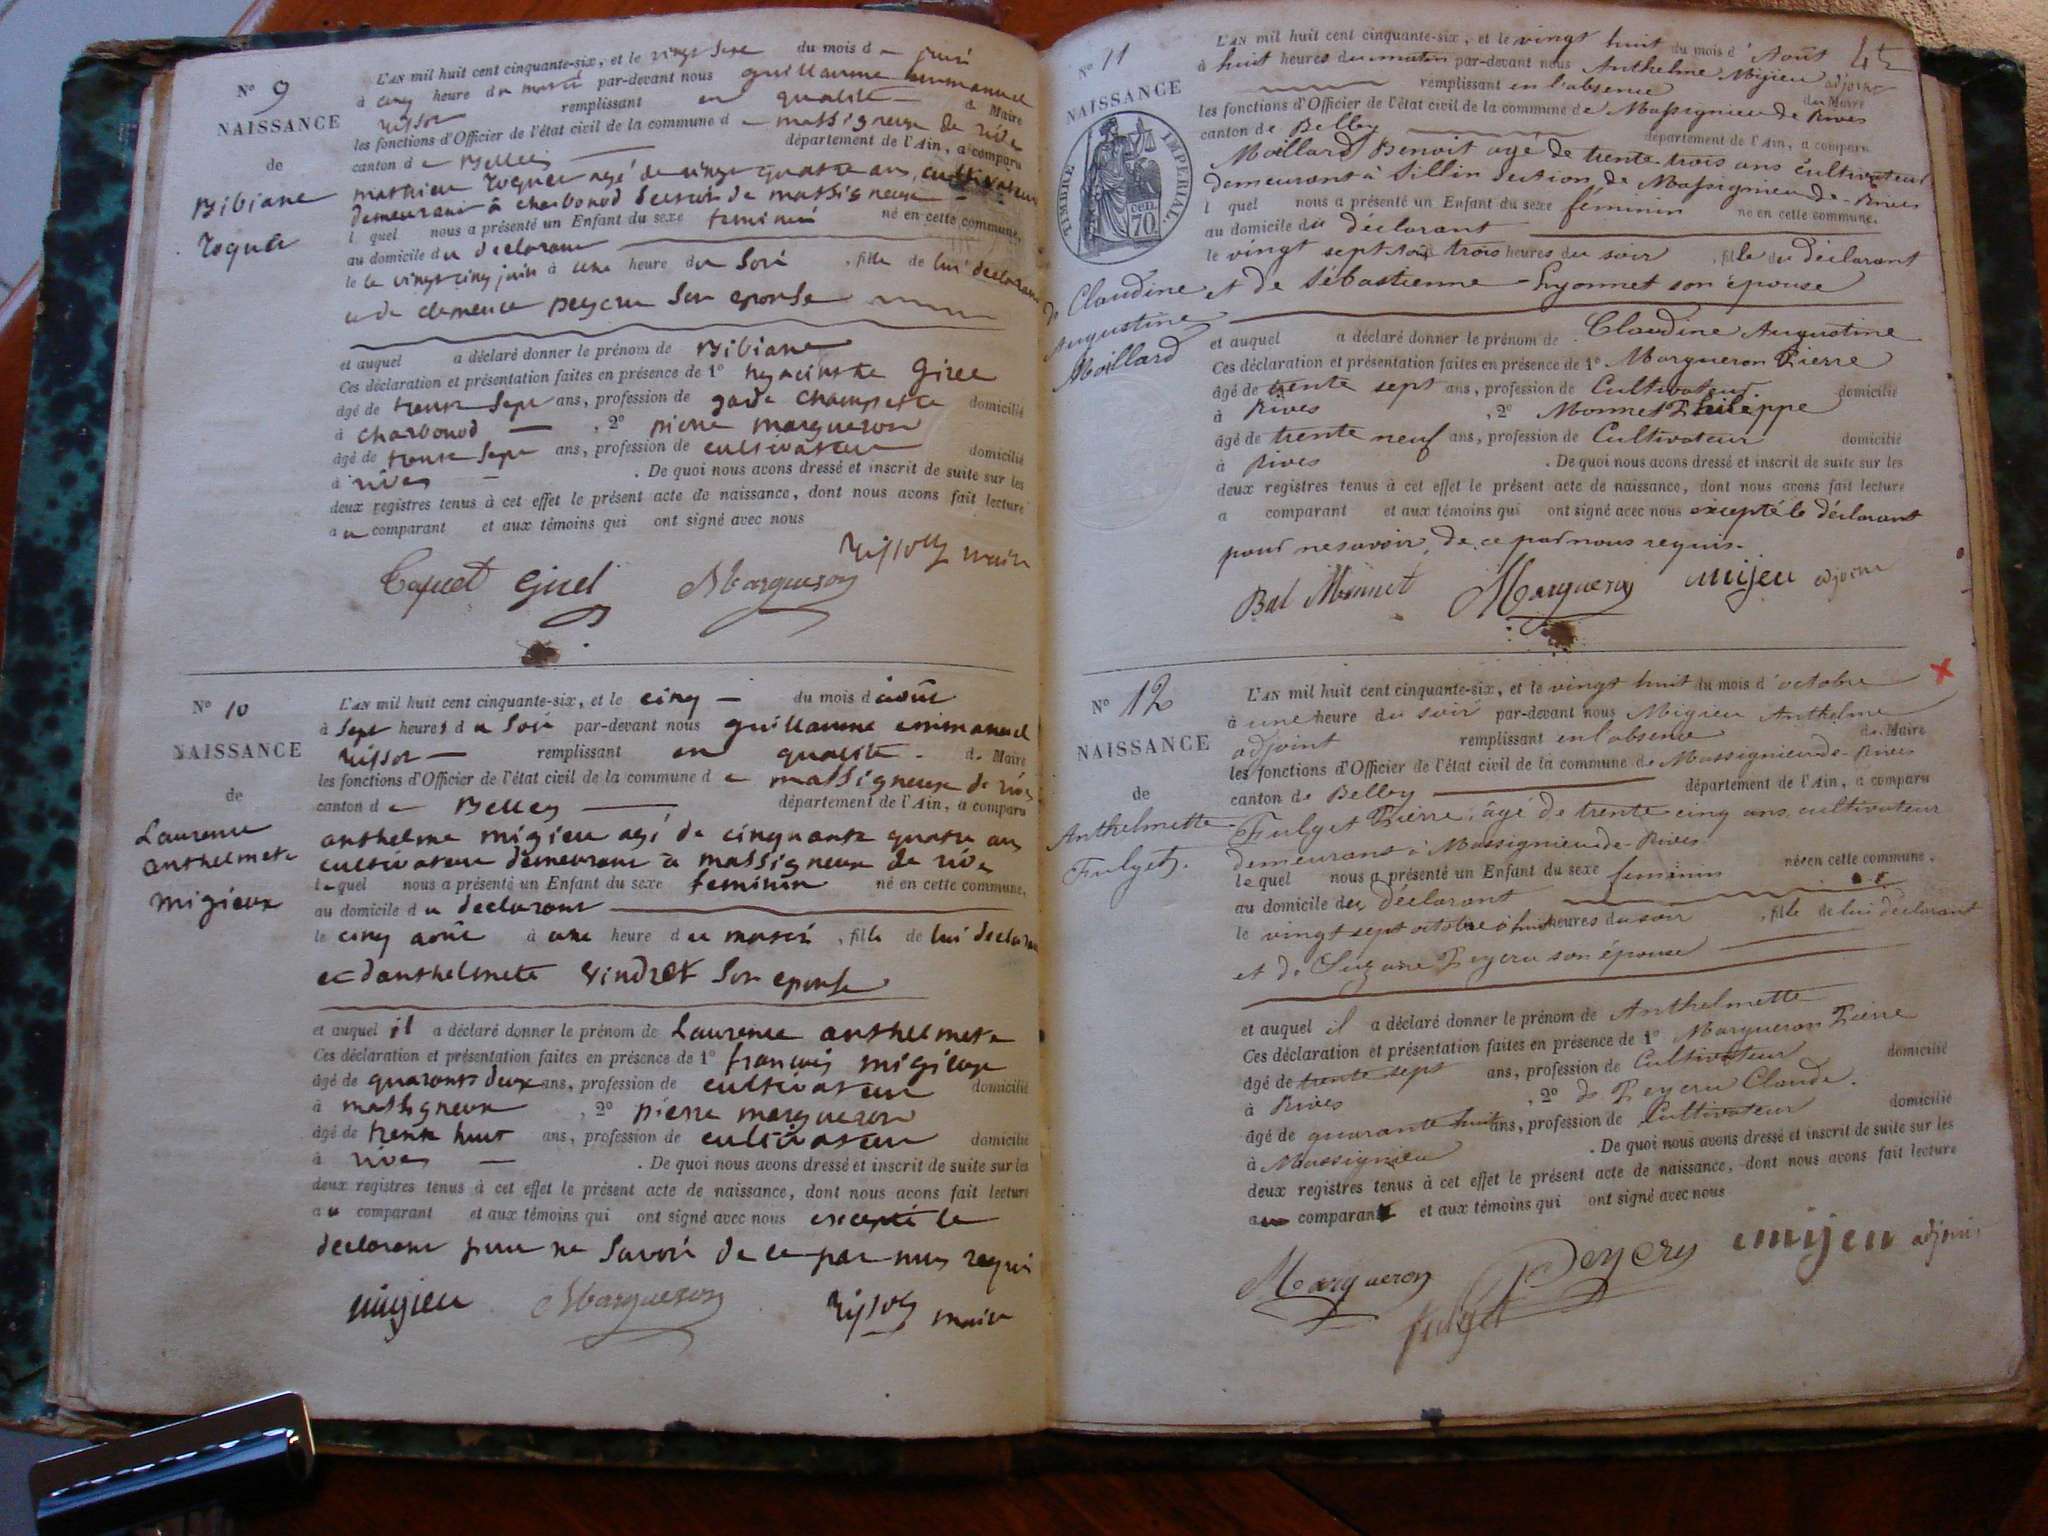 N° 9
NAISSANCE
de
Bibiane
Toquet
L'AN mil huit cent cinquante-six, et le vingt du mois de juin
à cinq heure du par-devant nous guillaume emmanuel
Rissot remplissant en qualité de Maire
les fonctions d'Officier de l'état civil de la commune de massigneux de rive
canton de Belley département de l'Ain, a comparu
mathieu toquet agé de vingt quatre ans cultivateur
demeurant à charbonod de massigneux
lequel nous a présenté un Enfant du sexe feminin né en cette commune,
au domicile du declarant
le le vingt cinq juin à une heure du Soir, fille de lui declarant
et de clemence peycru Son epouse
et auquel a déclaré donner le prénom de Bibiane
Ces déclaration et présentation faites en présence de 1° hyacinthe Girel
âgé de trente Sept ans, profession de garde champetre domicilié
à charbonod, 2° pierre margueron
âgé de trente Sept ans, profession de cultivateur domicilié
à rives. De quoi nous avons dressé et inscrit de suite sur les
deux registres tenus à cet effet le présent acte de naissance, dont nous avons fait lecture
au comparant et aux témoins qui ont signé avec nous
Toquet Girel Margueron Rissot maire
N° 10
NAISSANCE
de
Laurence
anthelmete
migieux
L'AN mil huit cent cinquante-six, et le cinq du mois d'août
à Sept heures du Soir par-devant nous guillaume emmanuel
Rissot remplissant en qualité de Maire
les fonctions d'Officier de l'état civil de la commune de massigneux de rives
canton de Belley département de l'Ain, a comparu
anthelme migieu agé de cinquante quatre ans
cultivateur demeurant à massigneux de rive
lequel nous a présenté un Enfant du sexe feminin né en cette commune,
au domicile du declarant
le cinq août à une heure du matin, fille de lui declarant
et danthelmete vindret Son epouse
et auquel il a déclaré donner le prénom de Laurence anthelmete
Ces déclaration et présentation faites en présence de 1° françois migieux
âgé de quarante deux ans, profession de cultivateur domicilié
à massigneux, 2° pierre margueron
âgé de trente huit ans, profession de cultivateur domicilié
à rives. De quoi nous avons dressé et inscrit de suite sur les
deux registres tenus à cet effet le présent acte de naissance, dont nous avons fait lecture
au comparant et aux témoins qui ont signé avec nous excepté le
declarant pour ne Savoir de ce par nous requis
migieu Margueron Rissot maire
N° 11
NAISSANCE
TIMBRE IMPERIAL
CEN. 70.
de Claudine
Augustine
Moillard
L'AN mil huit cent cinquante-six, et le vingt huit du mois d'Août
à huit heures du matin par-devant nous Anthelme Migieu adjoint
remplissant en l'absence du Maire
les fonctions d'Officier de l'état civil de la commune de Massignieu de Rives
canton de Belley département de l'Ain, a comparu
Moillard Benoit agé de trente trois ans cultivateur
demeurant à Sillin Section de Massignieu-de-Rives
lquel nous a présenté un Enfant du sexe féminin né en cette commune,
au domicile du déclarant
le vingt sept août trois heures du soir, fille du déclarant
et de Sébastienne Guyonnet son épouse
et auquel a déclaré donner le prénom de Claudine Augustine
Ces déclaration et présentation faites en présence de 1° Margueron Pierre
âgé de trente sept ans, profession de Cultivateur domicilié
à Rives, 2° Monnet Philippe
âgé de trente neuf ans, profession de Cultivateur domicilié
à Rives. De quoi nous avons dressé et inscrit de suite sur les
deux registres tenus à cet effet le présent acte de naissance, dont nous avons fait lecture
a comparant et aux témoins qui ont signé avec nous excepté le déclarant
pour ne savoir, de ce par nous requis.
Bal Monnet Margueron migeu adjoint
N° 12
NAISSANCE
de
Anthelmette
Fulget.
L'AN mil huit cent cinquante-six, et le vingt huit du mois d'octobre
à une heure du soir par-devant nous Migieu Anthelme
adjoint remplissant en l'absence du Maire
les fonctions d'Officier de l'état civil de la commune de Massignieu-de-Rives
canton de Belley département de l'Ain, a comparu
Fulget Pierre, âgé de trente cinq ans, cultivateur
demeurant à Massignieu-de-Rives
lequel nous a présenté un Enfant du sexe feminin née en cette commune,
au domicile du déclarant
le vingt sept octobre à huit heures du soir, fille de lui déclarant
et de Suzane Peycru son épouse
et auquel il a déclaré donner le prénom de Anthelmette
Ces déclaration et présentation faites en présence de 1° Margueron Pierre
âgé de trente sept ans, profession de Cultivateur domicilié
à Rives, 2° de Peycru Claude.
âgé de quarante huit ans, profession de Cultivateur domicilié
à Massignieu. De quoi nous avons dressé et inscrit de suite sur les
deux registres tenus à cet effet le présent acte de naissance, dont nous avons fait lecture
au comparant et aux témoins qui ont signé avec nous
Margueron Peycru migeu adjoint
fulget